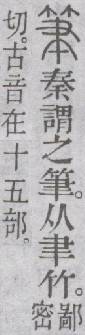 筆秦謂之筆。从聿竹。鄙密
切。古音在十五部。